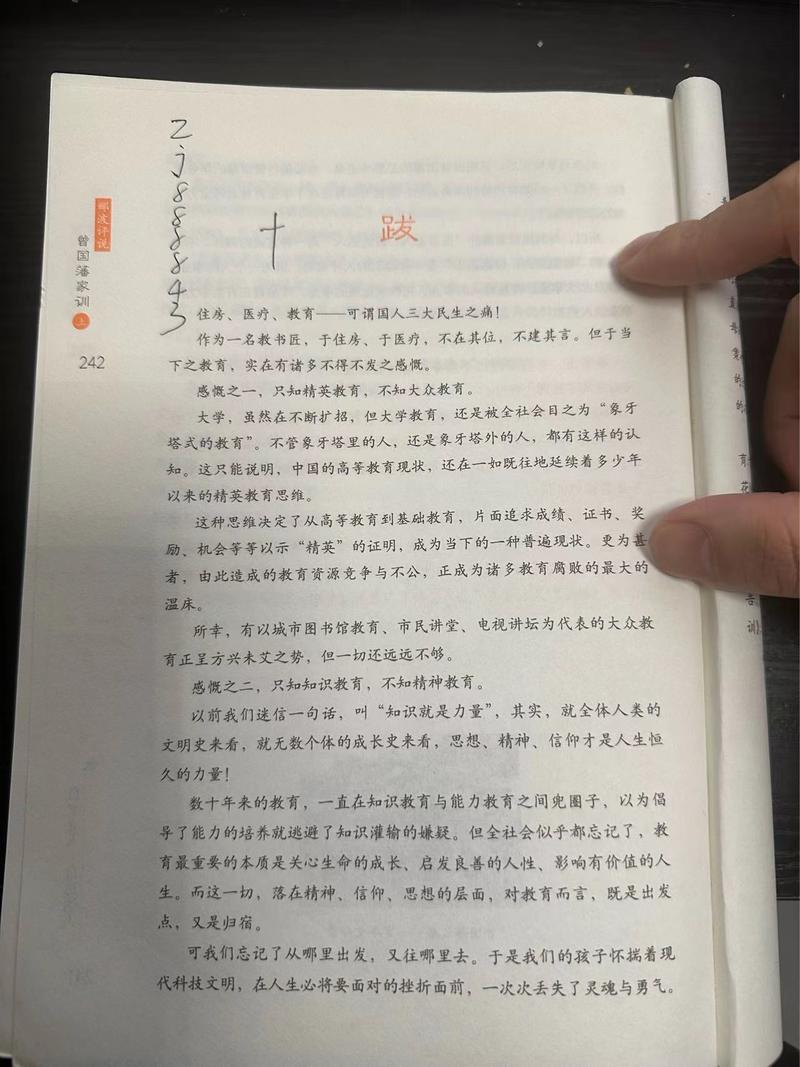 zj888843
十
跋
郦波评说
曾国藩家训
上
242
住房、医疗、教育——可谓国人三大民生之痛！
作为一名教书匠，于住房、于医疗，不在其位，不建其言。但于当
下之教育，实在有诸多不得不发之感慨。
感慨之一，只知精英教育，不知大众教育。
大学，虽然在不断扩招，但大学教育，还是被全社会目之为“象牙
塔式的教育”。不管象牙塔里的人，还是象牙塔外的人，都有这样的认
知。这只能说明，中国的高等教育现状，还在一如既往地延续着多少年
以来的精英教育思维。
这种思维决定了从高等教育到基础教育，片面追求成绩、证书、奖
励、机会等等以示“精英”的证明，成为当下的一种普遍现状。更为甚
者，由此造成的教育资源竞争与不公，正成为诸多教育腐败的最大的
温床。
所幸，有以城市图书馆教育、市民讲堂、电视讲坛为代表的大众教
育正呈方兴未艾之势，但一切还远远不够。
感慨之二，只知知识教育，不知精神教育。
以前我们迷信一句话，叫“知识就是力量”，其实，就全体人类的
文明史来看，就无数个体的成长史来看，思想、精神、信仰才是人生恒
久的力量！
数十年来的教育，一直在知识教育与能力教育之间兜圈子，以为倡
导了能力的培养就逃避了知识灌输的嫌疑。但全社会似乎都忘记了，教
育最重要的本质是关心生命的成长、启发良善的人性、影响有价值的人
生。而这一切，落在精神、信仰、思想的层面，对教育而言，既是出发
点，又是归宿。
可我们忘记了从哪里出发，又往哪里去。于是我们的孩子怀揣着现
代科技文明，在人生必将要面对的挫折面前，一次次丢失了灵魂与勇气。